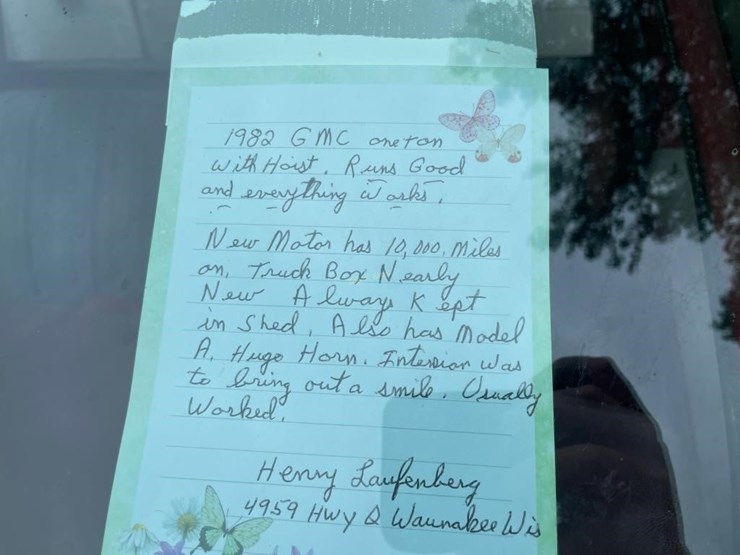 1982 GMC one ton
with Hoist. Runs Good
and everything works.
New Motor has 10,000. miles
on. Truck Box Nearly
New Always Kept
in Shed. Also has Model
A. Hugo Horn. Intension was
to bring out a smile. Usually
Worked.
Henry Laufenberg
4959 Hwy Q Waunakee Wis